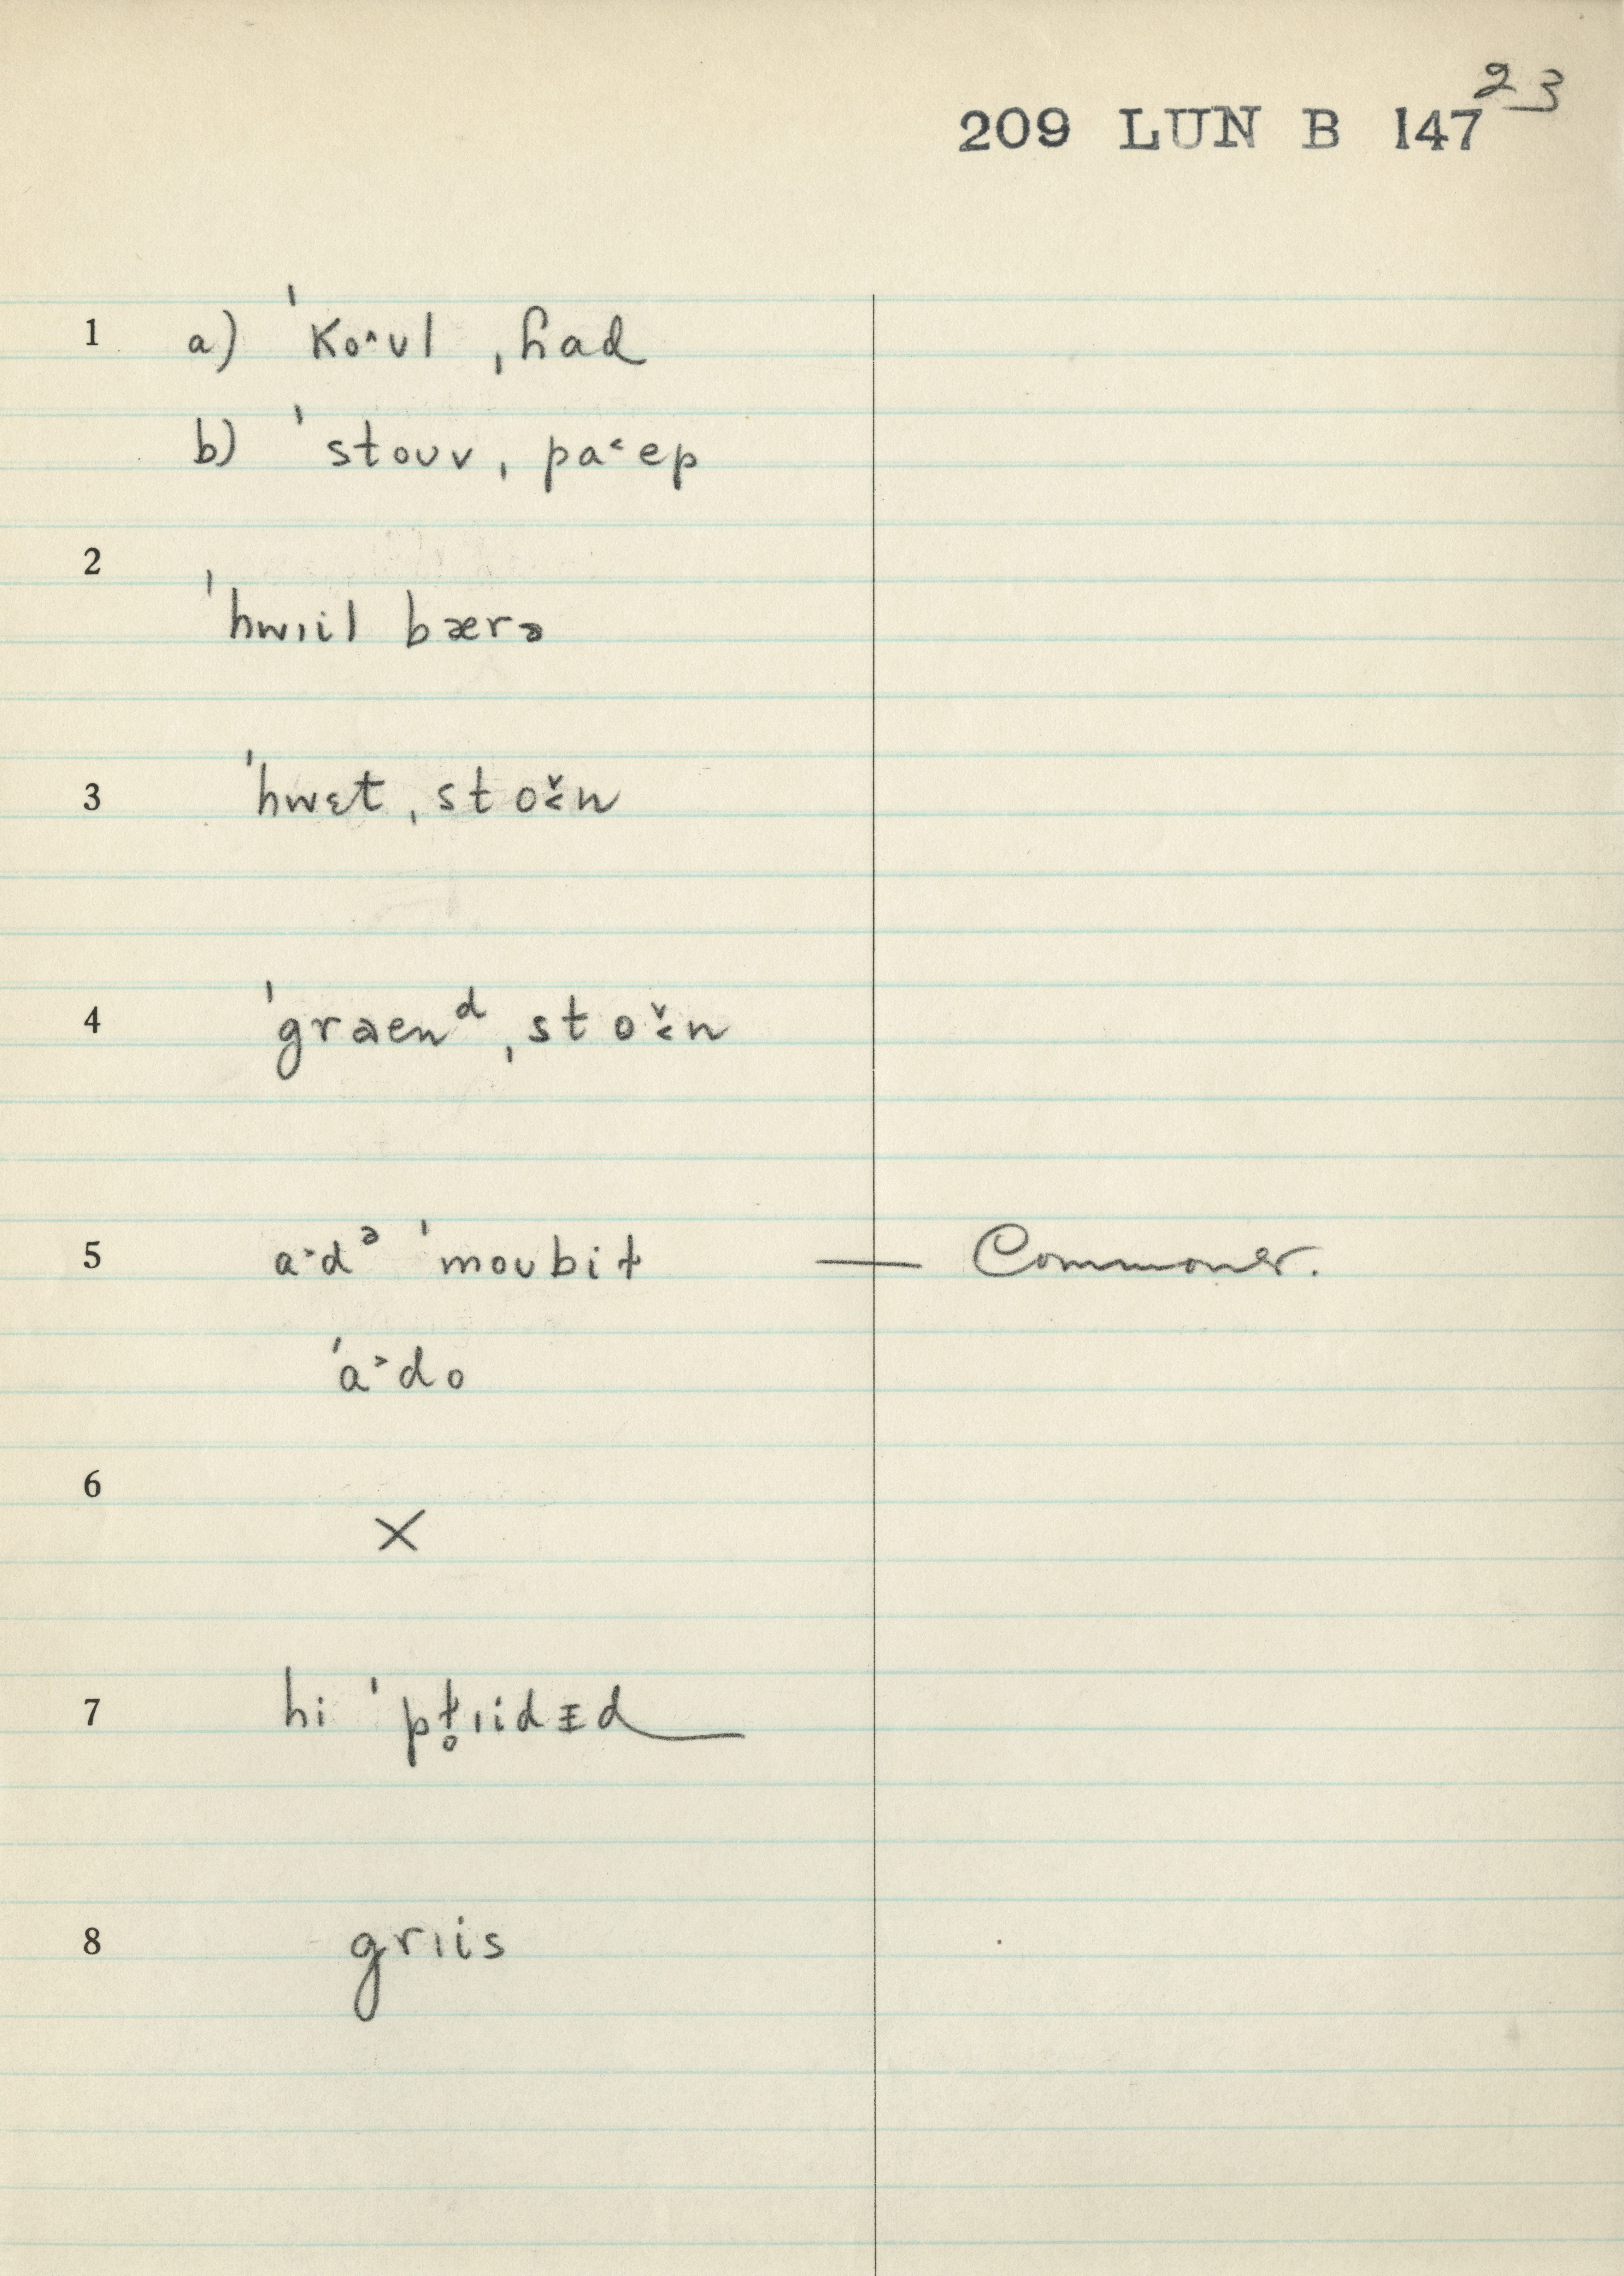 23
209 LUN B 147
1 a) ˈko˄ʊl ˌɦad
b) ˈstoʊv ˌpa˂ep
2 ˈhwɪil bærə
3 ˈhwɛt ˌsto˂̌n
4 ˈgraenᵈ ˌsto˂̌n
5 a˃dᵊ ˈmoʊbiɫ — Commoner.
ˈa˃do
6 X
7 hi ˈpɫ̥ɪidɪ̵d
8 grɪis